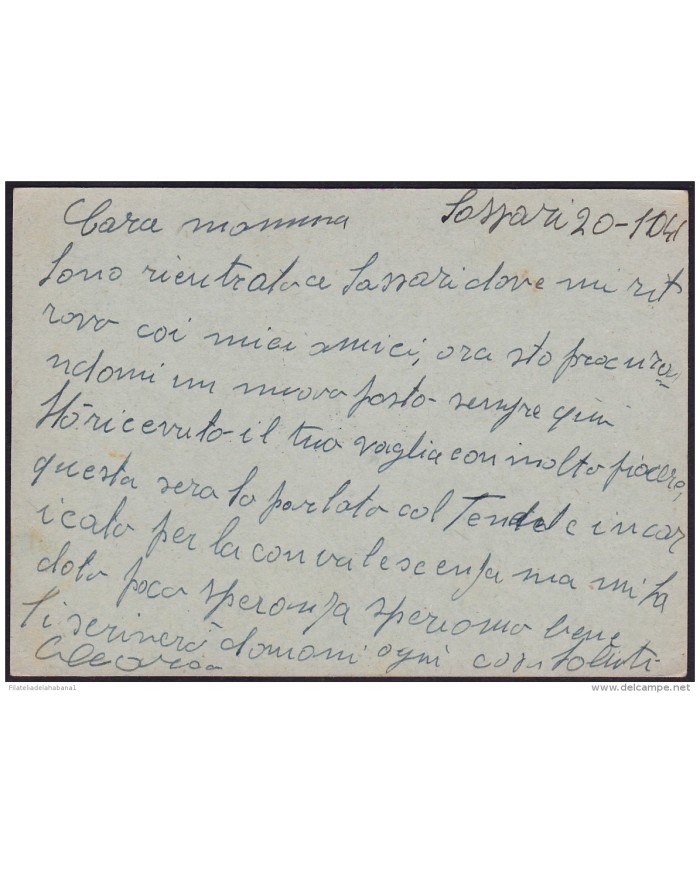 Cara mamma Sassari 20-1041
Sono rientrato a Sassari dove mi rit
rovo coi miei amici, ora sto procura
ndomi un nuovo posto sempre qui
Hò ricevuto il tuo vaglia con molto piacere,
questa sera ho parlato col Ten incar
icato per la convalescenza ma mi ha
dato poca speranza speriamo bene
Ti scriverò domani ogni cosa Saluti
Filateliadelahabana1
www.delcampe.net